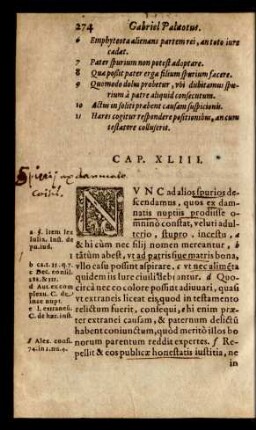 274 Gabriel Palæotus.
6 Emphyteuta alienans partem rei, an toto iure cadat.
7 Pater spurium non potest adoptare.
8 Quæ possit pater erga filium spurium facere.
9 Quomodo dolus probetur, vbi dubitamus spurium à patre aliquid consecutum.
10 Actus insoliti præbent causam suspicionis.
11 Hæres cogitur respondere positionibus, an cum testatore colluserit.
CAP. XLIII.
Spurij ex damnato
Coitu.
NVNC ad alios spurios descendamus,
quos ex damnatis nuptiis prodiisse
omninò constat, veluti adulterio,
stupro, incestu, a
& hi cùm nec filij nomen mereantur, b
tātùm abest, vt ad patris siue matris bona,
vllo casu possint aspirare, c vt nec alimēta
quidem iis iure ciuili debeantur. d Quocirca
nec eo colore possint adiuuari, quasi
vt extranei liceat eis, quod in testamento
relictum fuerit, consequi, e hi enim præter
extranei causam, & paternum delictū
habent coniunctum, quòd meritò illos honorum
parentum reddit expertes. f Repellit
& eos publicæ honestatis iustitia, ne
in
a §. item lex
Iulia. Ind. de
pu. iud.
e l. extranei.
C. de hær. inst.
f Alex. consi.